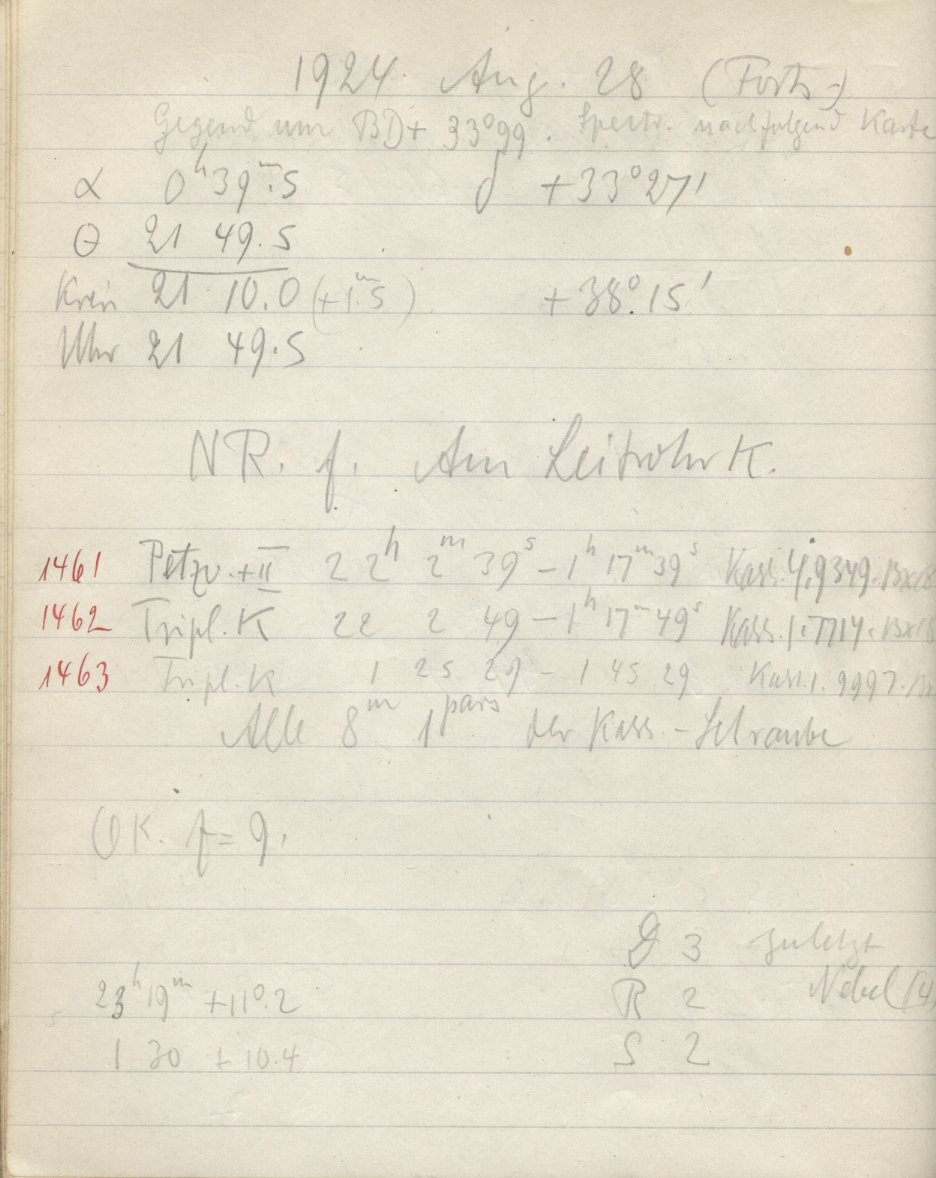 1924 Aug. 28 (Forts.)
Gegend um BD + 33°99. Spectr. nachfolgend Karte
α 0ʰ39ᵐ.5 δ +33°27'
θ 21 49.5
Kreis 21 10.0 (+1ᵐ.5) +38°.15'
Uhr 21 49.5
NR. f. Am Leitrohr K.
1461 Petzv. + II 22ʰ 2ᵐ 39ˢ – 1ʰ 17ᵐ 39ˢ Kass. 4.9349.
1462 Tripl. K 22 2 49 – 1ʰ 17ᵐ 49ˢ Kass. 1.7714.
1463 Tripl. K 1 25 29 – 1 45 29 Kass. 1.9997.
Alle 8ᵐ 1ᵖᵃʳˢ der Kass.-Schraube
OK. f = 9.
D 3 zuletzt
23ʰ 19ᵐ +11°.2 R 2 Nebel (4)
1 30 + 10.4 S 2